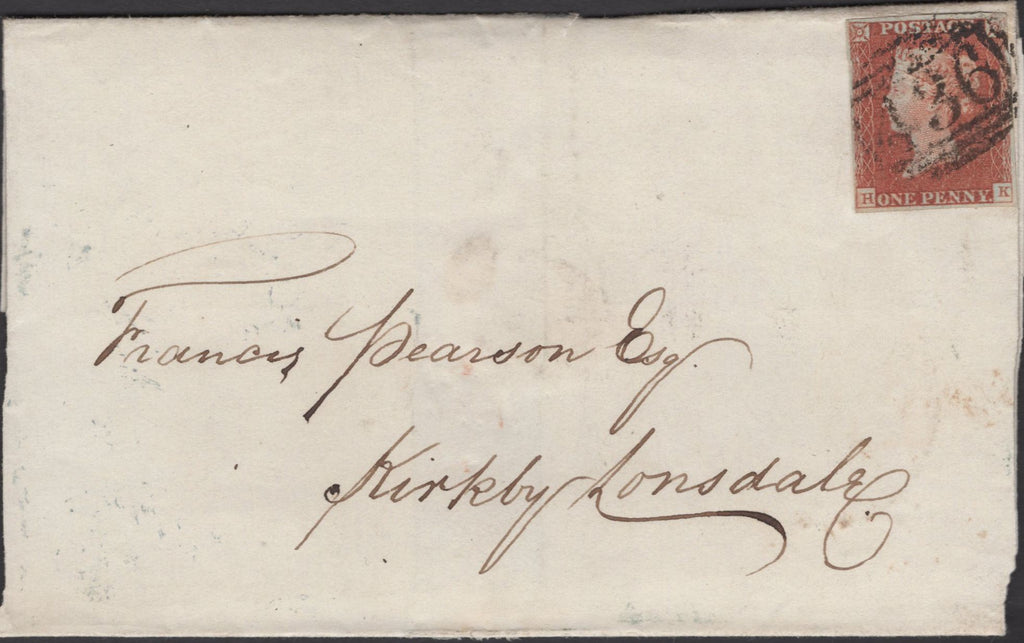 POSTAGE
36
H ONE PENNY. K
Francis Pearson Esq.
Kirkby Lonsdale